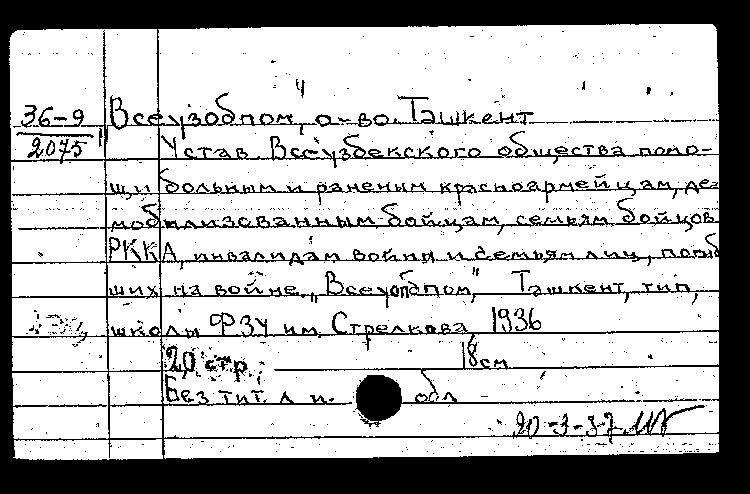 36-9 "Всеузобпом", о-во. Ташкент
2075 Устав Всеузбекского общества помо-
щи больным и раненым красноармейцам, де-
мобилизованным бойцам, семьям бойцов
РККА, инвалидам войны и семьям лиц, погиб
ших на войне „Всеузобпом", Ташкент, тип,
школы ФЗУ им. Стрелкова, 1936
20 стр. 18 см
Без тит. л. и обл
20-3-37